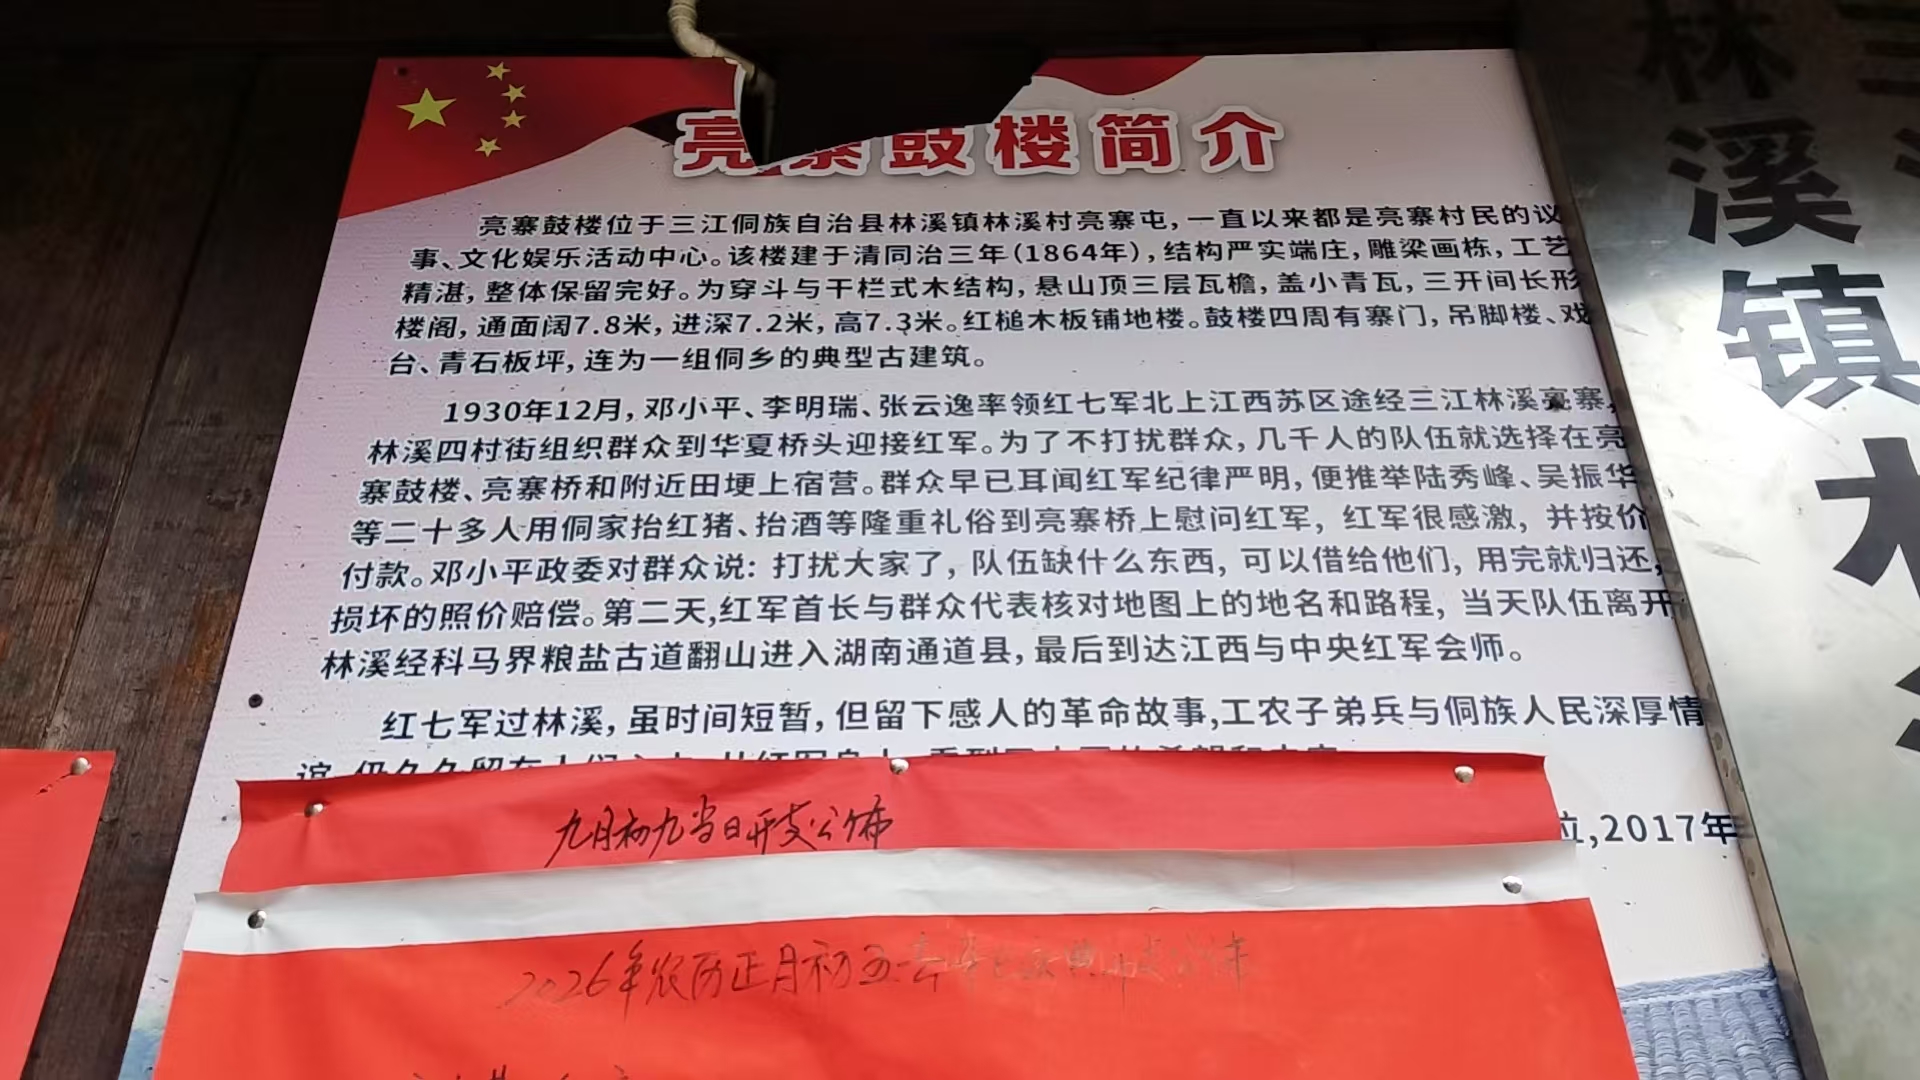 亮寨鼓楼简介
亮寨鼓楼位于三江侗族自治县林溪镇林溪村亮寨屯，一直以来都是亮寨村民的议
事、文化娱乐活动中心。该楼建于清同治三年（1864年），结构严实端庄，雕梁画栋，工艺
精湛，整体保留完好。为穿斗与干栏式木结构，悬山顶三层瓦檐，盖小青瓦，三开间长形
楼阁，通面阔7.8米，进深7.2米，高7.3米。红槌木板铺地楼。鼓楼四周有寨门，吊脚楼、戏
台、青石板坪，连为一组侗乡的典型古建筑。
1930年12月，邓小平、李明瑞、张云逸率领红七军北上江西苏区途经三江林溪亮寨，
林溪四村街组织群众到华夏桥头迎接红军。为了不打扰群众，几千人的队伍就选择在亮
寨鼓楼、亮寨桥和附近田埂上宿营。群众早已耳闻红军纪律严明，便推举陆秀峰、吴振华
等二十多人用侗家抬红猪、抬酒等隆重礼俗到亮寨桥上慰问红军，红军很感激，并按价
付款。邓小平政委对群众说：打扰大家了，队伍缺什么东西，可以借给他们，用完就归还，
损坏的照价赔偿。第二天,红军首长与群众代表核对地图上的地名和路程，当天队伍离开
林溪经科马界粮盐古道翻山进入湖南通道县，最后到达江西与中央红军会师。
红七军过林溪，虽时间短暂，但留下感人的革命故事,工农子弟兵与侗族人民深厚情
谊
,2017年
九月初九当日开支公佈
2026年农历正月初五
林
溪
镇